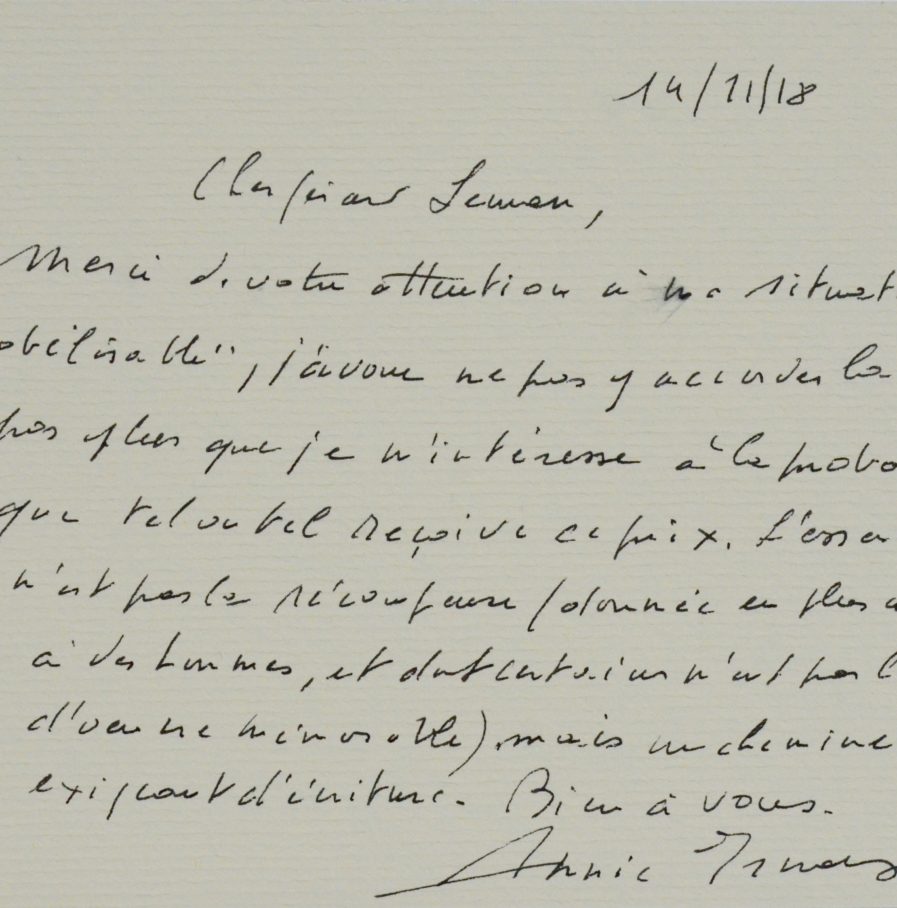 14/11/18
Cher Gérard
Merci de votre attention à ma situat
obélisable", j'avoue ne pas y accorder la
pas plus que je m'intéresse à la proba
que tel ou tel reçoive ce prix. L'essen
n'est pas la récompense (donnée en plus
à des hommes, et dont certains n'ont pas
d'oeuvre mémorable) mais un chemine
exigeant d'écriture. Bien à vous.
Annie Ernaux